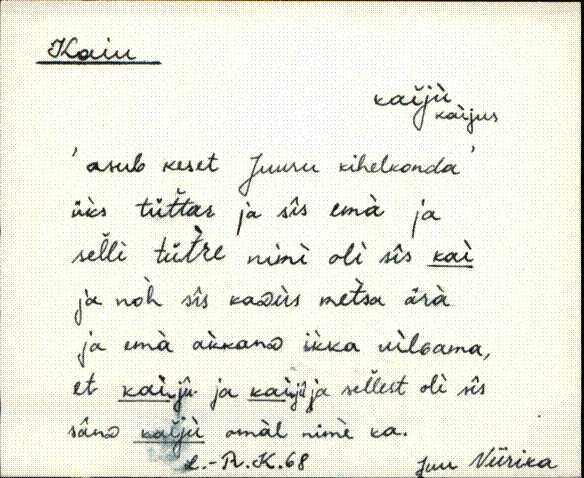 Kaiu
kaĭjù
kàijus
'asub keset Juuru kihelkonda'
üks tüt̆tar ja sîs emà ja
sel̆lì tüt̀re nimì olì sîs kaì
ja nòh sîs kaᴅùs mèt̀sa ärà
ja emà akkanᴅ ìkka uìlɢama,
et kaìjû ja kaìjûja sel̆lest olì sîs
sânᴅ kaĭjù omàl nimè ka.
L.-R.K. 68
Juu Viirika